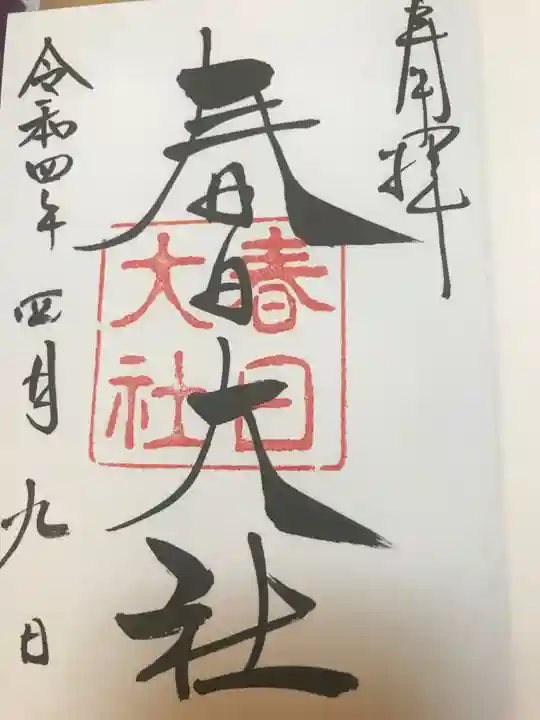 奉拝
春日大社
春日
大社
令和四年 四月 九日